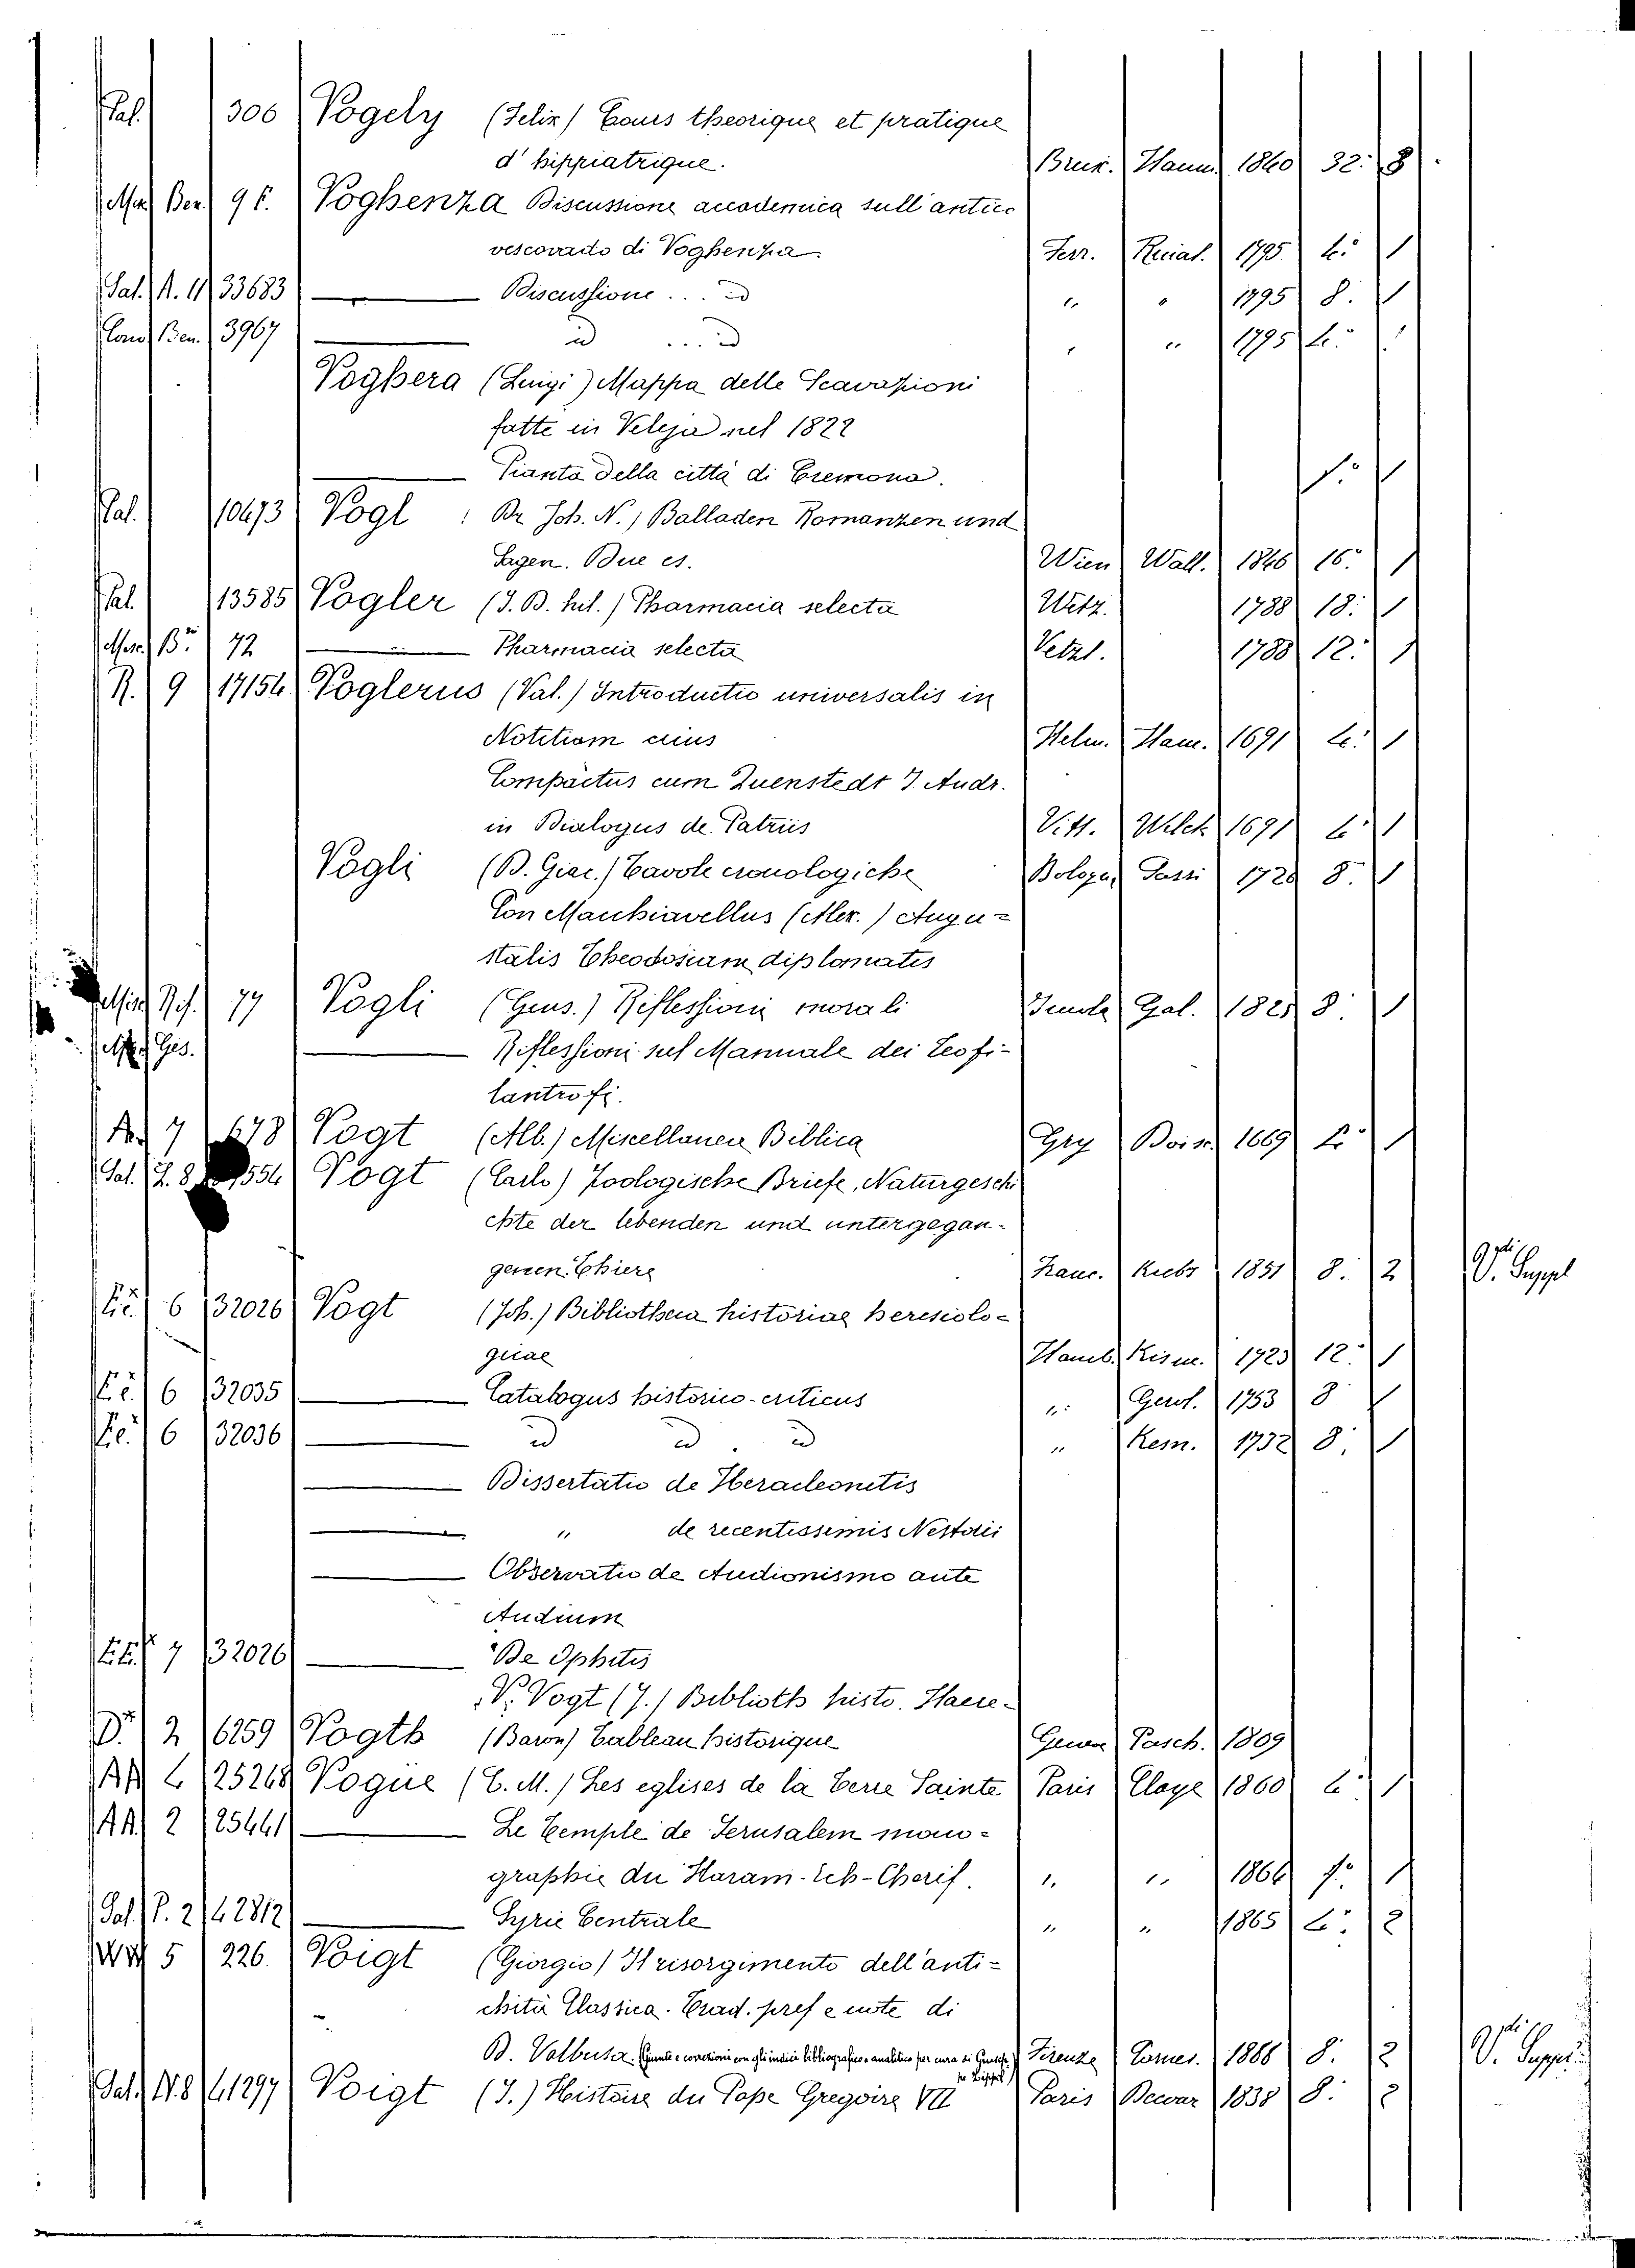 Pal. 306 Vogely (Felix) Cours theorique et pratique
d'hippiatrique. Brux. Haum. 1840 32. 8
Misc. Ben. 96. Voghenza Discussione accademica sull'antico
vescovado di Voghenza Ferr. Rinal. 1795 4.° 1
Sal. A. 11 33683 Discussione ... id " " 1795 8. 1
Cons. Ben. 3967 id ... id " " 1795 4.° 1
Voghera (Luigi) Mappa delle Scavazioni
fatte in Veleja nel 1822
Pianta della città di Cremona. f.° 1
Pal. 10473 Vogl : Dr Joh. N.) Balladen Romanzen und
Sagen. Due es. Wien Wall. 1846 16.° 1
Pal. 13585 Vogler (J. B. hil.) Pharmacia selecta Wetz. 1788 18. 1
Misc. B. 72 Pharmacia selecta Vetzl. 1788 12. 1
R. 9 17154 Voglerus (Val.) Introductio universalis in
Notitiam cuius Helm. Ham. 1691 4. 1
Compactus cum Quenstedt J. Andr.
in Dialogus de Patriis Vitt. Welck 1691 4. 1
Vogli (B. Giac.) Tavole cronologiche Bologna Sassi 1728 8. 1
Con Macchiavellus (Alex.) Augu=
stalis Theodosiam diplomatis
77 Vogli (Gius.) Riflessioni morali Imola Gal. 1825 8. 1
Ges. Riflessioni sul Manuale dei Teofi-
lantrofi.
7 678 Vogt (Alb.) Miscellanea Biblica Gry Bois. 1669 4.° 1
Sal. Z. 8 Vogt (Carlo) Zoologische Briefe, Naturgeschi
chte der lebenden und untergegan-
genen Thiere Franc. 1851 8. 2 V. Suppl
6 32026 Vogt (Joh.) Bibliotheca historiae heresiolo-
gicae Hamb. Kisn. 1723 12. 1
6 32035 Catalogus historico-criticus " Gerol. 1753 8 1
6 32036 id id id " Kern. 1732 8. 1
Dissertatio de Heracleonitis
" de recentissimis Nestorii
Observatio de Audionismo ante
Audium
7 32026 De Ophitis
V. Vogt (J.) Biblioth histo. Haere-
D. 2 6259 Vogth (Baron) Tableau historique Geneve Pasch. 1809
AA 4 25268 Vogüe (C. M.) Les eglises de la Terre Sainte Paris Claye 1860 4. 1
AA 2 25441 Le Temple de Jerusalem mono=
graphie du Haram-Ech-Cherif. " " 1864 f.° 1
Sal. P. 2 42812 Syrie Centrale " " 1865 4.° 2
5 226. Voigt (Giorgio) Il risorgimento dell'anti=
chità Classica. Trad. pref e note di
D. Valbusa. (Giunte e correzioni con gli indici bibliografico e analitico per cura di Giusep- Firenze 1888 8. 2 V. Suppl.
pe Lippol)
Sal. N. 8 41297 Voigt (J.) Histoire du Pape Gregoire VII Paris 1838 8. 2